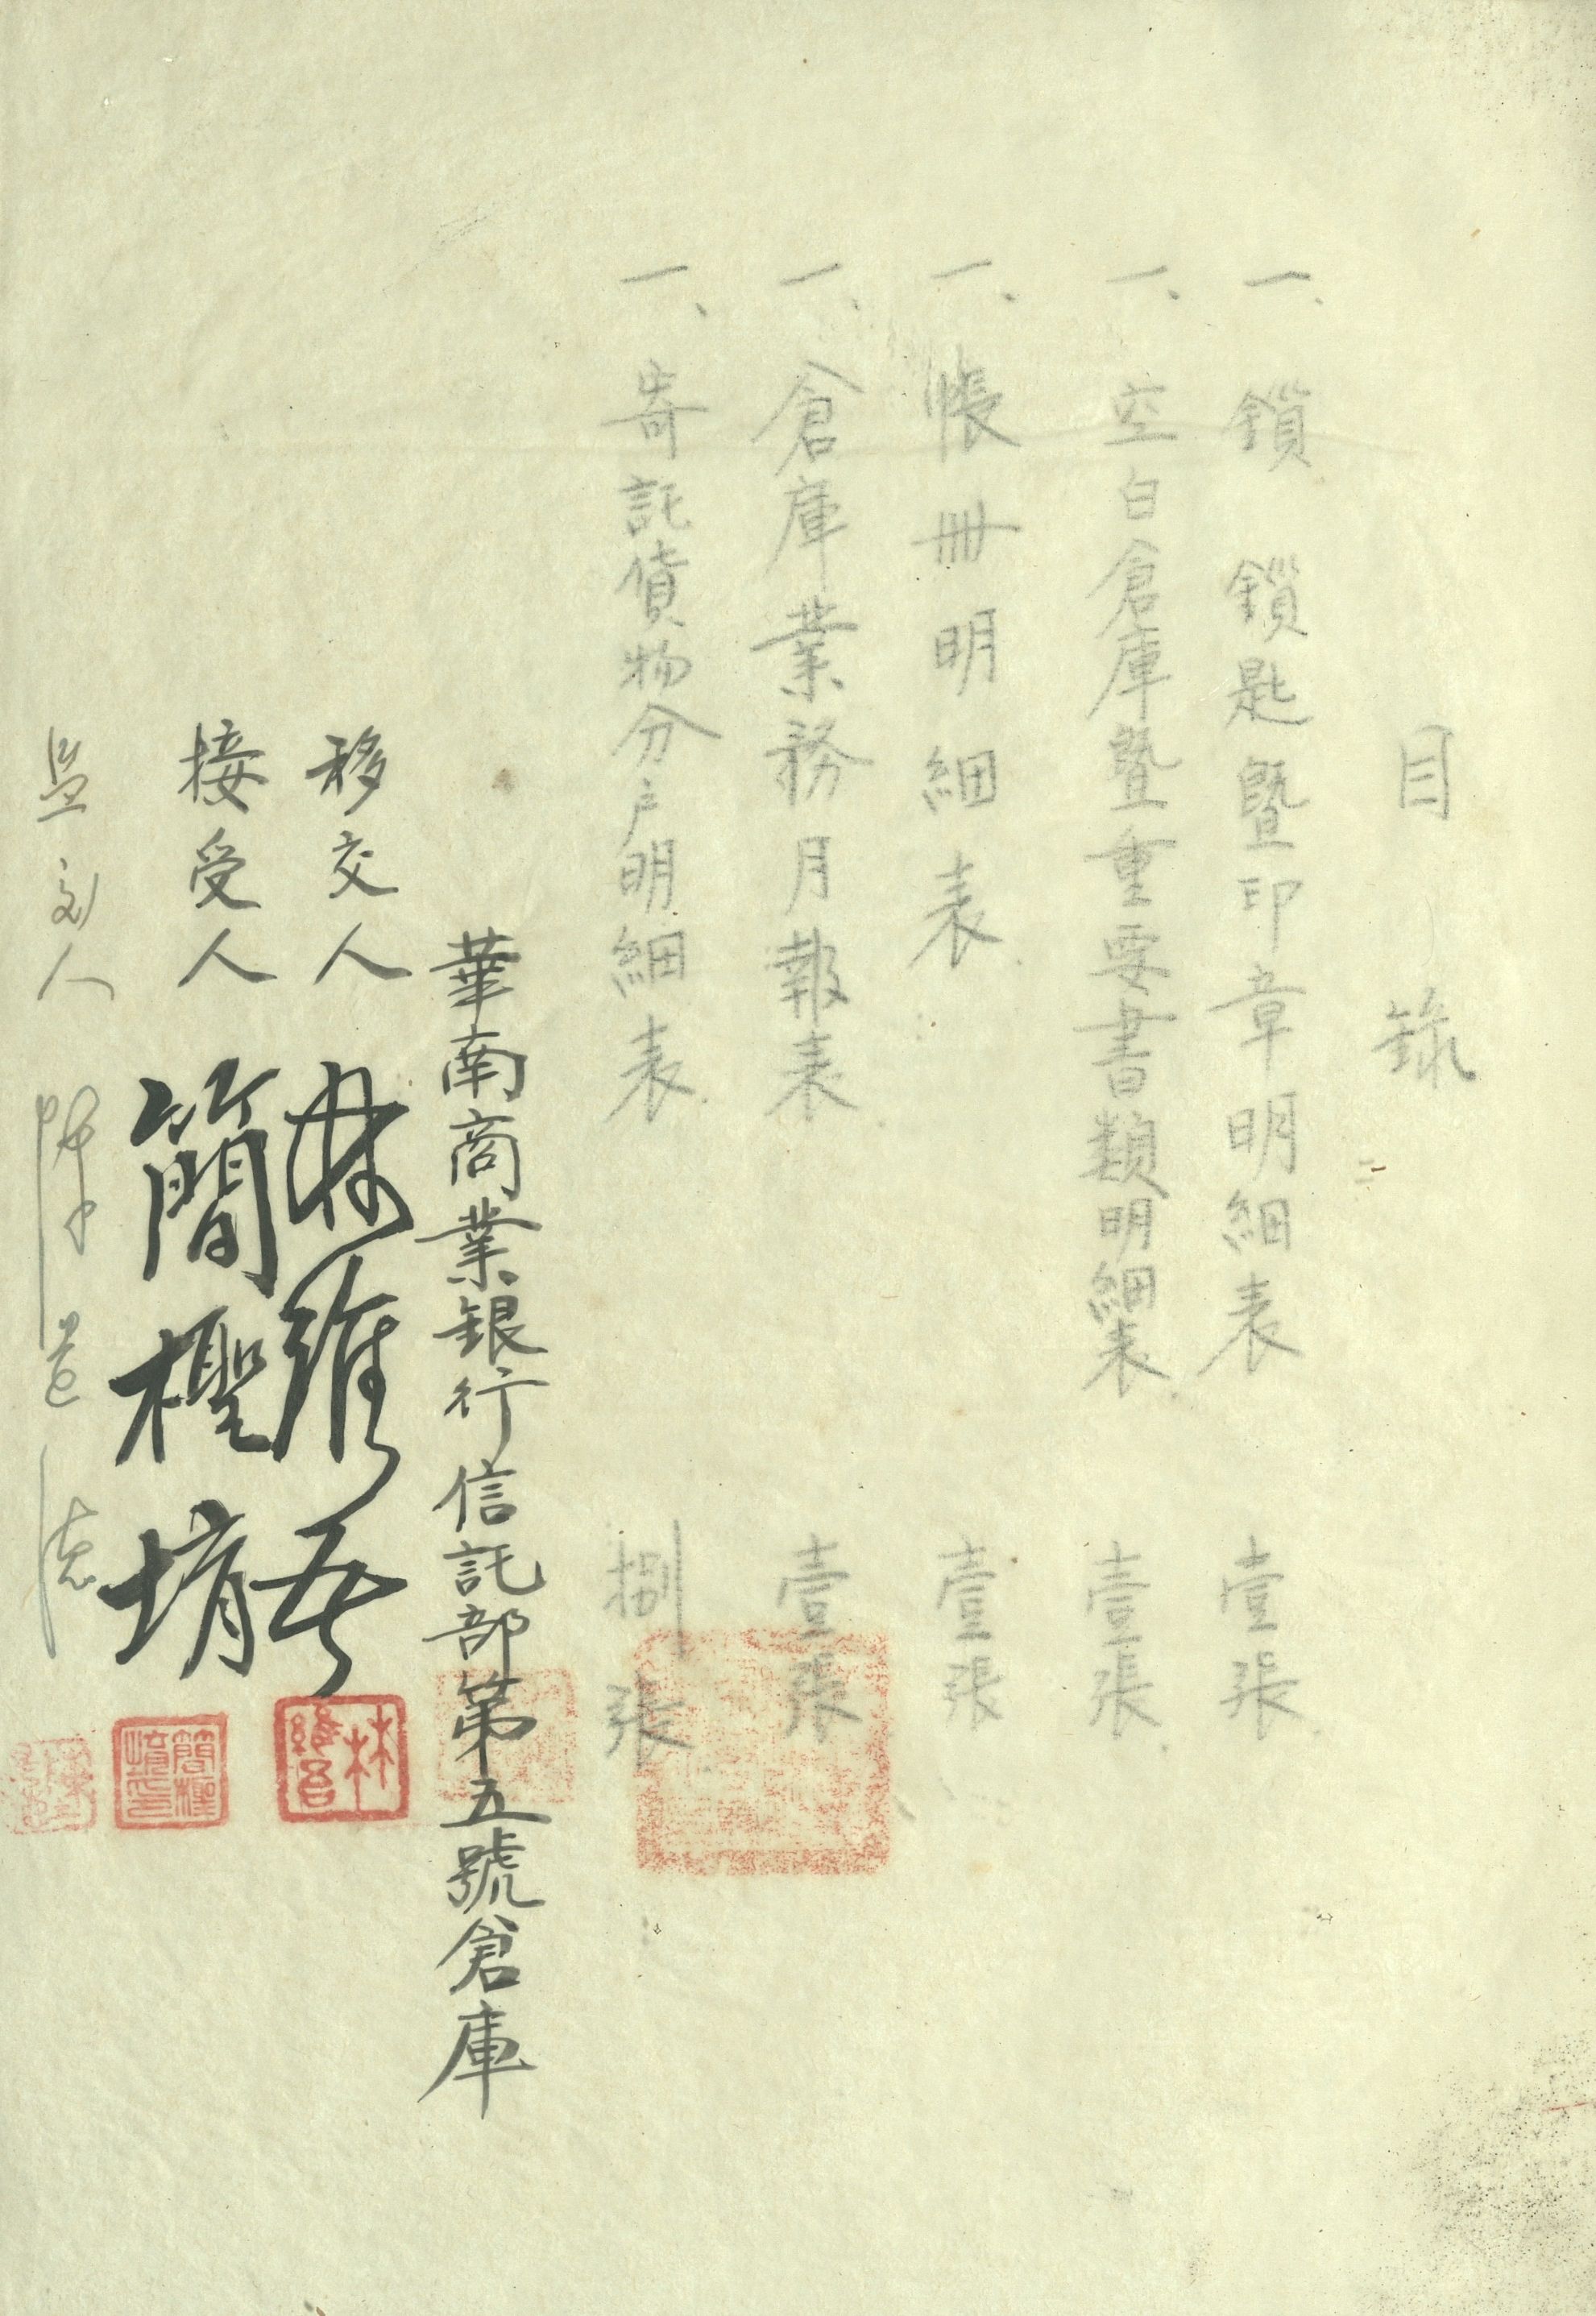 目錄
一、鎖 鎖匙暨印章明細表 壹張
一、空白倉庫暨重要書類明細表 壹張
一、帳冊明細表 壹張
一、倉庫業務月報表 壹張
一、寄託貨物分戶明細表 捌張
華南商業銀行信託部第五號倉庫
移交人 林維吾
林維吾
接受人 簡檉堉
簡檉堉印
監交人 陳蒼德